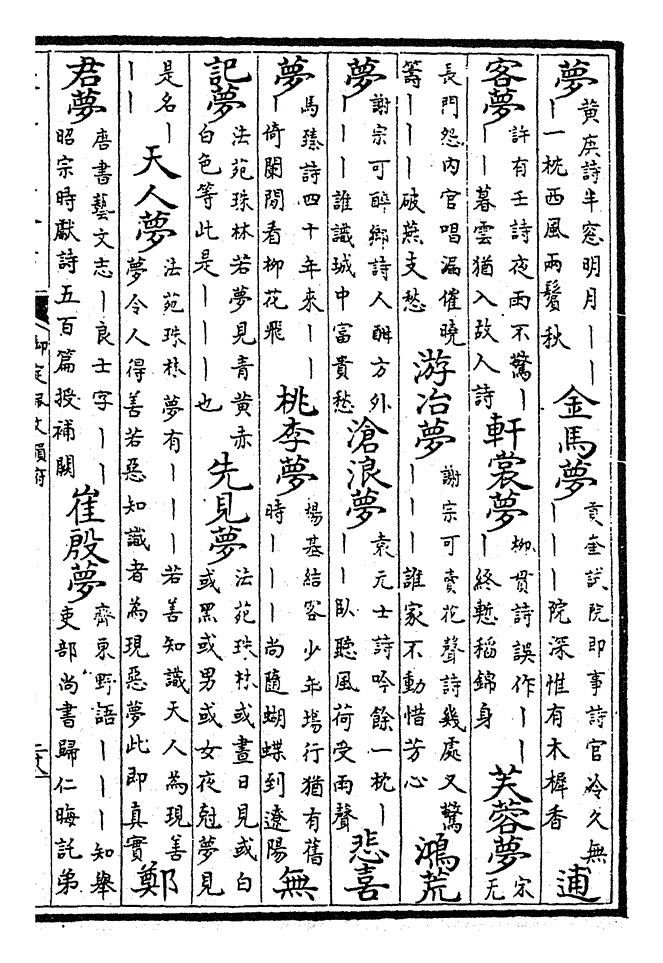 夢
黃庚詩半窓明月｜｜｜
｜一枕西風兩鬢秋
金馬夢
貢奎試院即事詩官冷久無
｜｜｜院深惟有木樨香
逋
客夢
許有壬詩夜雨不驚｜
｜｜暮雲猶入故人詩
軒裳夢
柳貫詩誤作｜｜
｜終慙稻錦身
芙蓉夢
宋
无
長門怨內官唱漏催曉
籌｜｜｜破燕支愁
游冶夢
謝宗可賣花聲詩幾處又驚
｜｜｜誰家不動惜芳心
鴻荒
夢
謝宗可醉鄉詩人酣方外
｜｜｜誰識城中富貴愁
滄浪夢
袁元士詩吟餘一枕｜
｜｜臥聽風荷受雨聲
悲喜
夢
馬臻詩四十年來｜｜
｜倚闌閒看柳花飛
桃李夢
楊基結客少年塲行猶有舊
時｜｜｜尚隨蝴蝶到遼陽
無
記夢
法苑珠林若夢見青黃赤
白色等此是｜｜｜也
先見夢
法苑珠林或晝日見或白
或黑或男或女夜尅夢見
是名｜
｜｜
天人夢
法苑珠林夢有｜｜｜若善知識天人為現善
夢令人得善若惡知識者為現惡夢此即真實
鄭
君夢
唐書藝文志｜良士字｜｜
昭宗時獻詩五百篇授補闕
崔殷夢
齊東野語｜｜｜知舉
吏部尚書歸仁晦託弟
御定佩文韻府